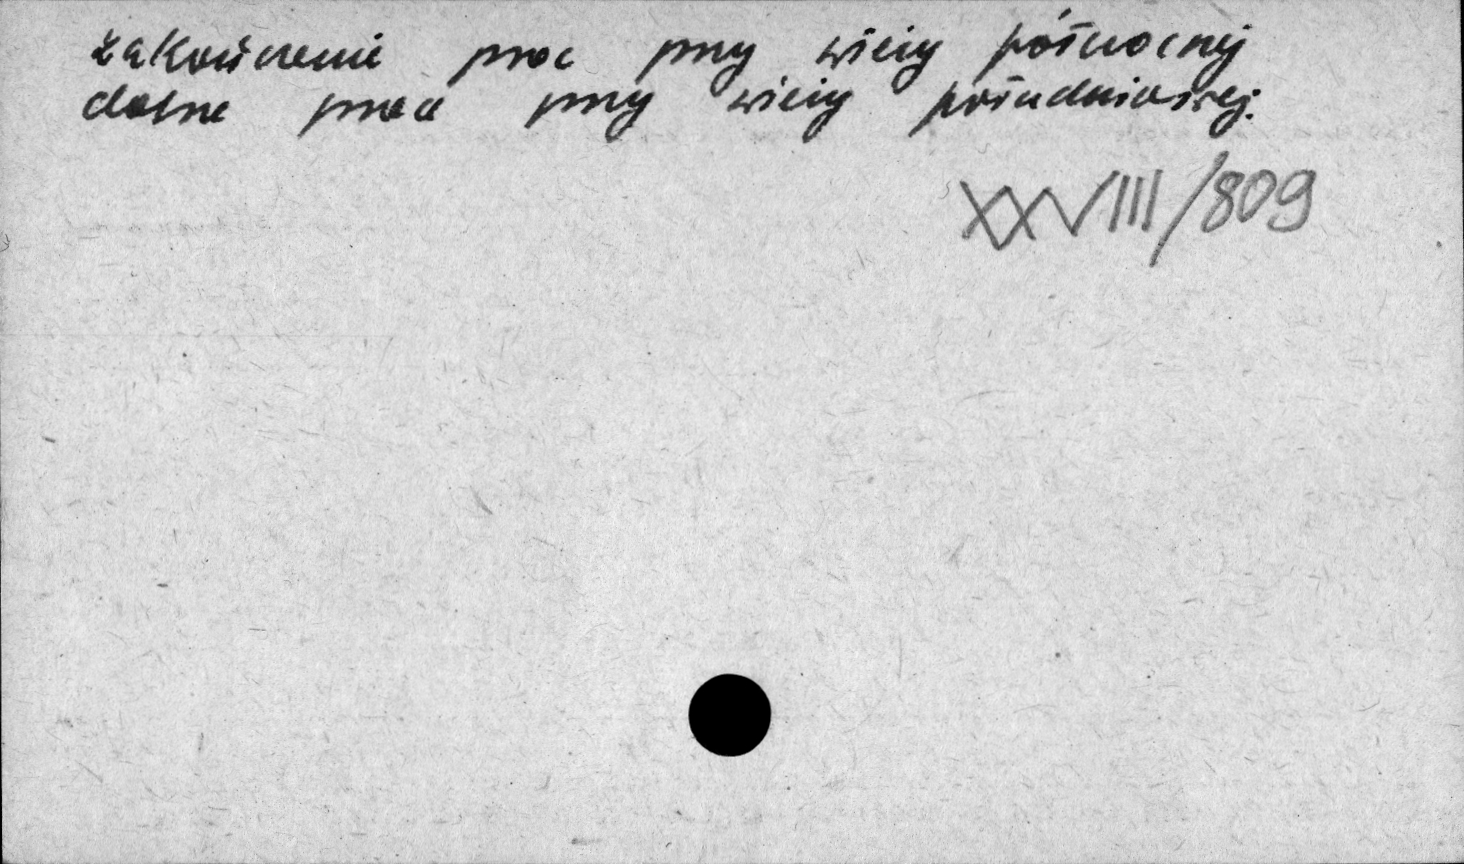 zakończenie prac przy wieży północnej
dalsze prace przy wieży południowej.
XXVIII/809